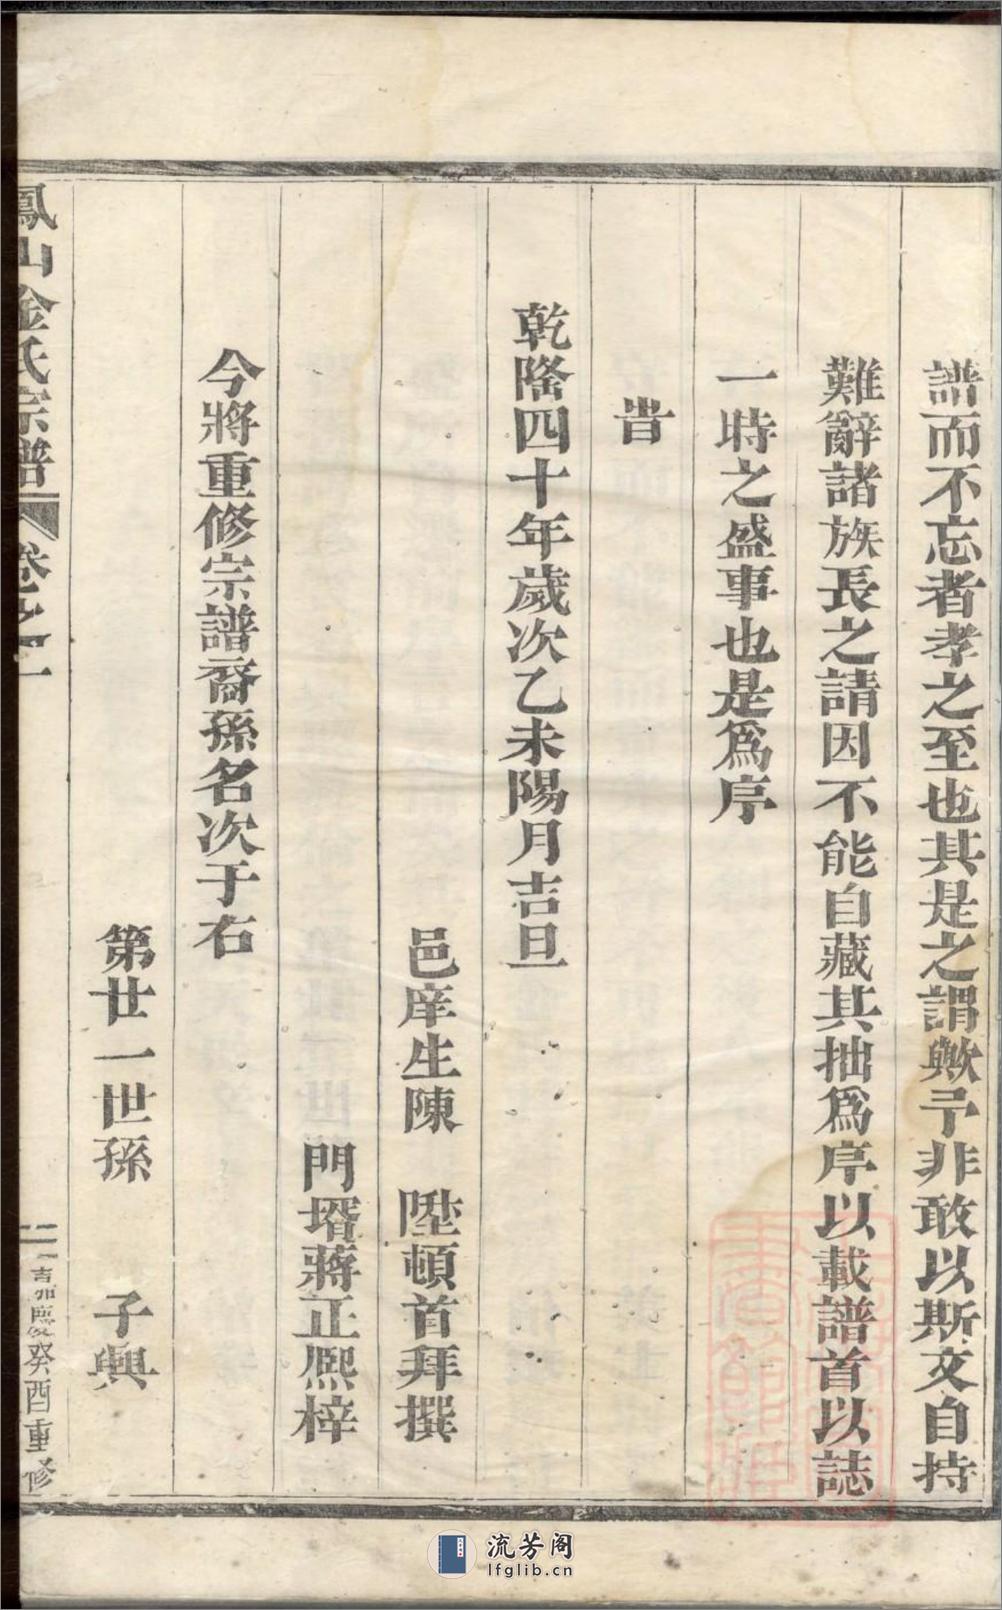 譜而不忘者孝之至也其是之謂歟予非敢以斯文自持
難辭諸族長之請因不能自藏其拙爲序以載譜首以誌
一時之盛事也是爲序
旹
乾隆四十年歲次乙未陽月吉旦
邑庠生陳 陞頓首拜撰
門壻蔣正熙梓
今將重修宗譜裔孫名次于右
第廿一世孫 子興
鳳山金氏宗譜 卷之一
二 嘉慶癸酉重修
流芳阁
lfglib.cn